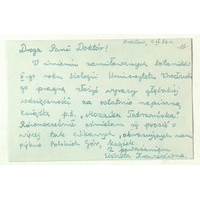 Droga Pani Doktór!
W imieniu zamiłowanych botaników
II-go roku biologii Uniwersytetu Wrocław-
go pragnę złożyć wyrazy głębokiej
wdzięczności za ostatnio napisaną
książkę p.t. „Mozaika Tatrzańska".
Równocześnie ośmielam się prosić o
więcej tak ciekawych, obrazujących nam
piękno Polskich Gór, książek.
Z poważaniem